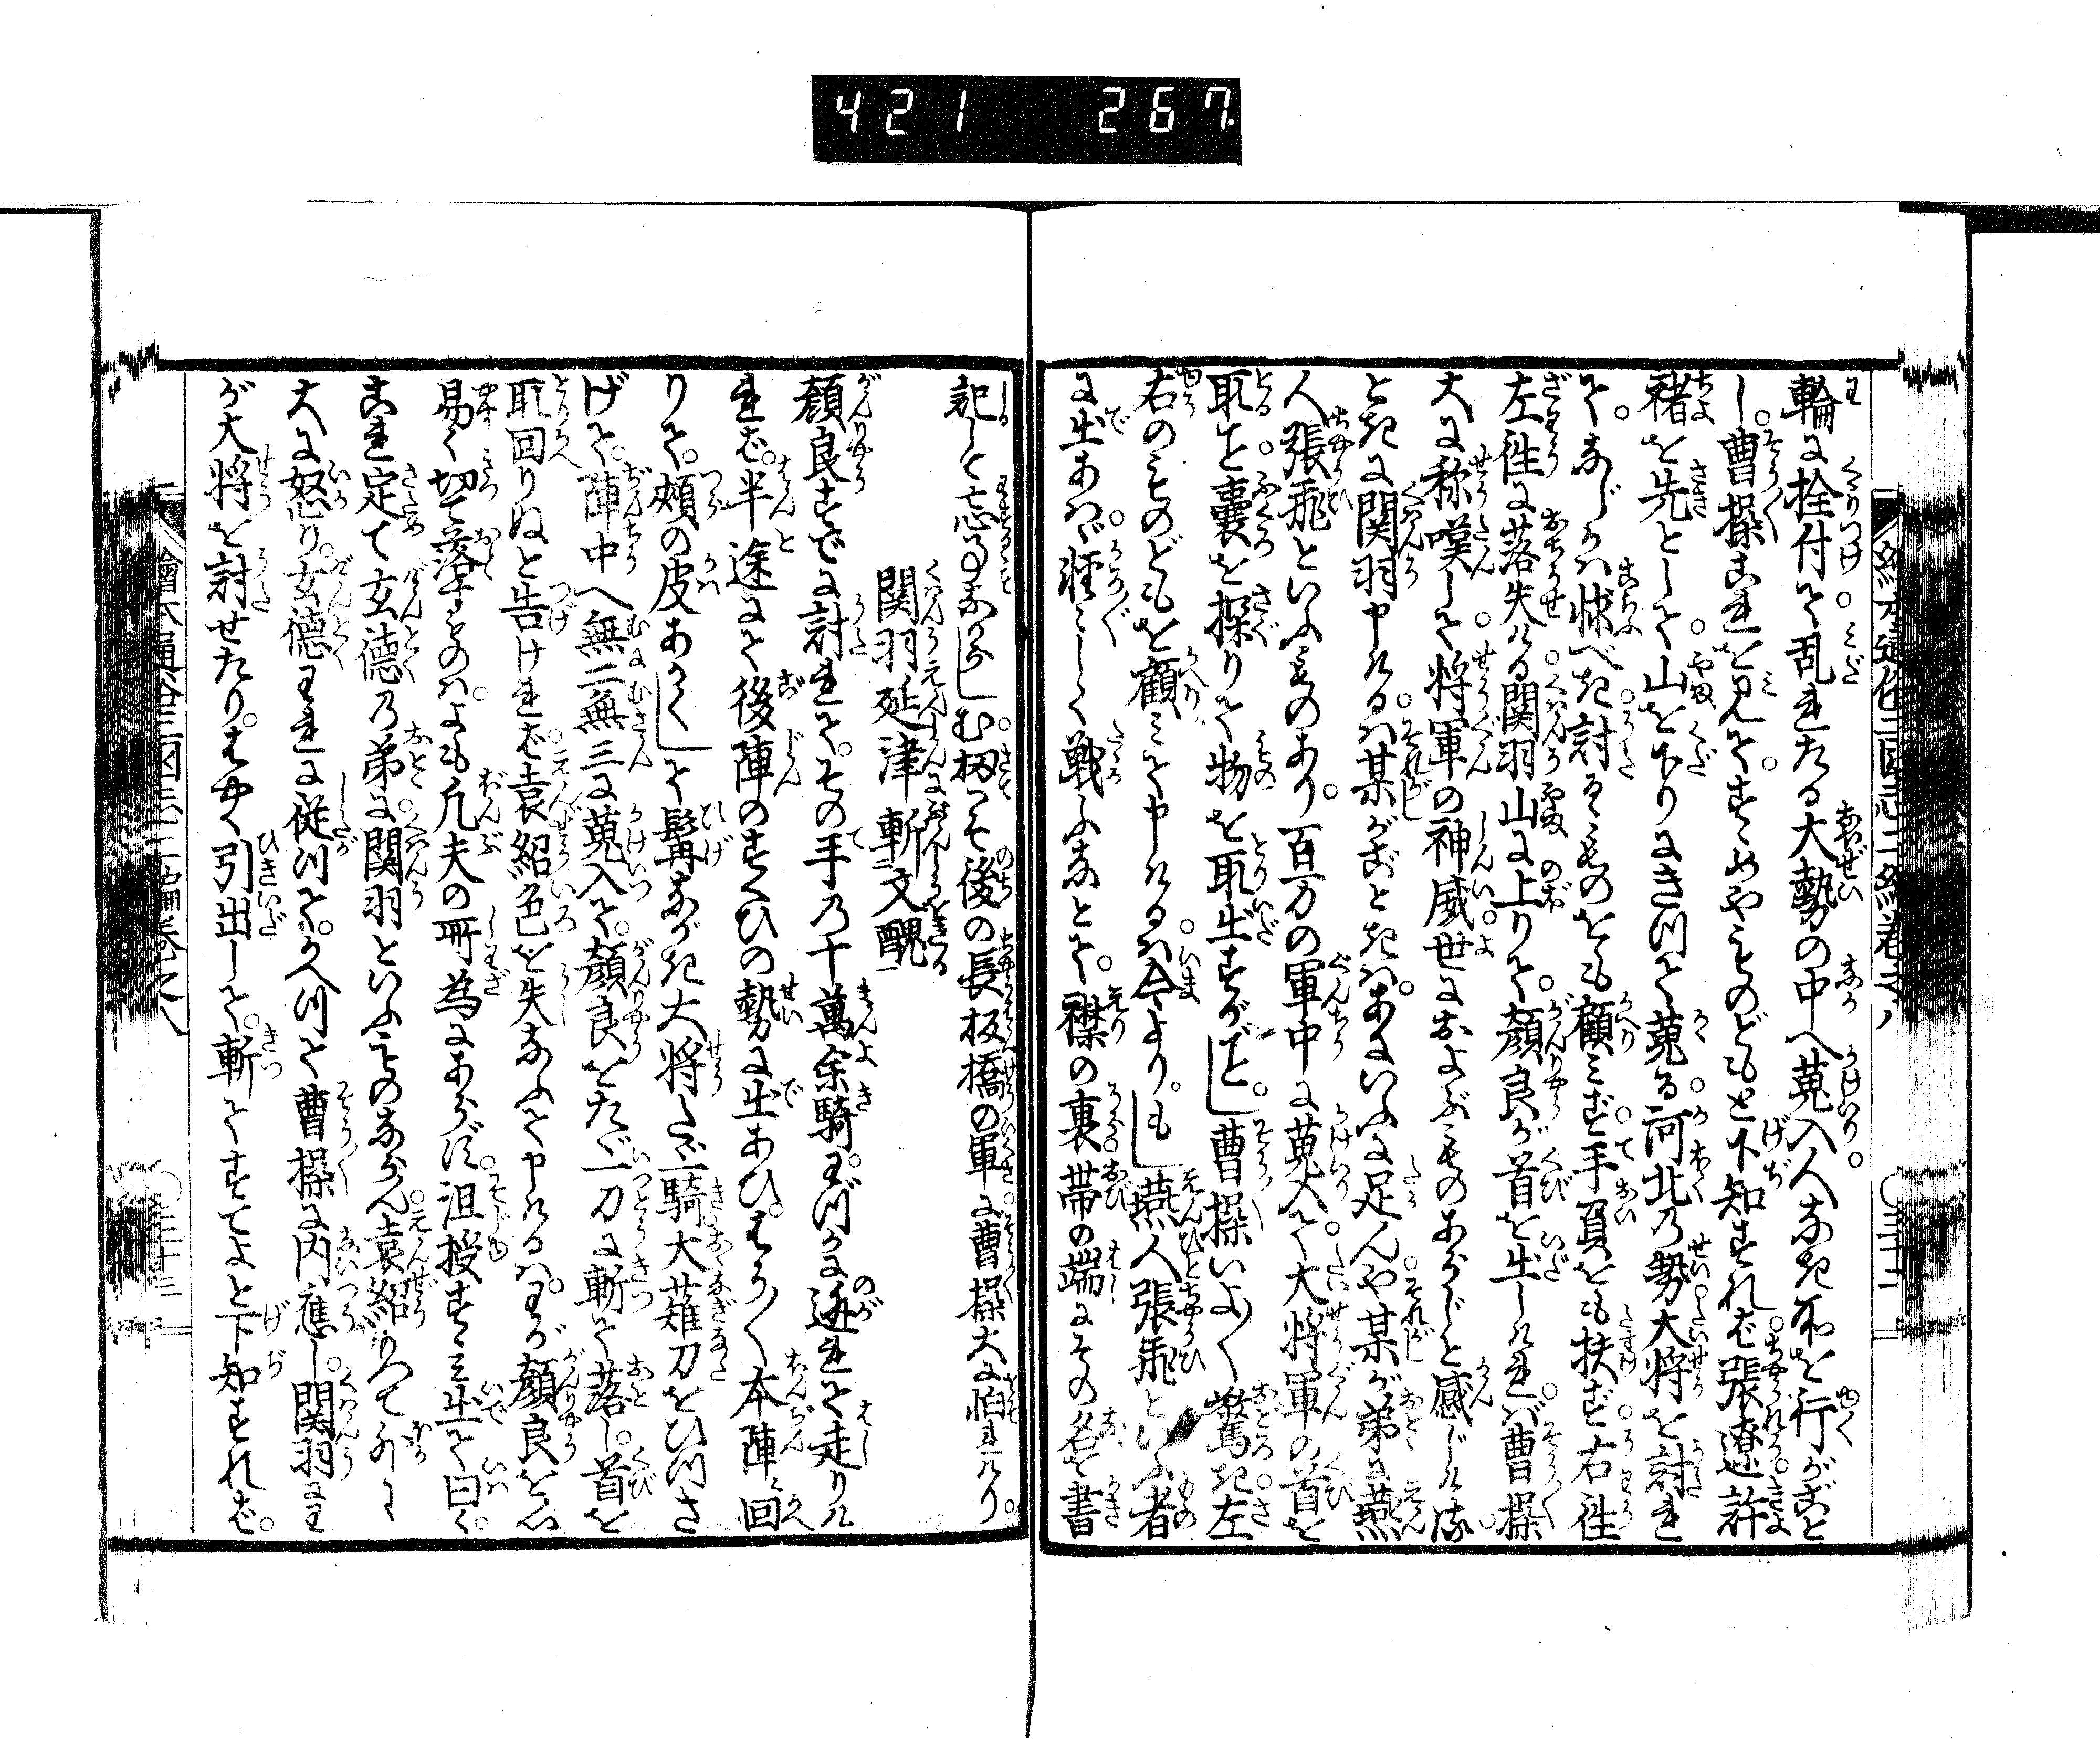 421 267
輪に拴付て乱れたる大勢の中へ蒐入人なき所を行がごと
し。曹操これを見て。すはやものどもと下知すれば張遼許
褚を先として山を下りにきつて蒐る河北の勢大将を討れ
て。なじかは怺べき討るゝものをも顧ミず手負をも扶ず右往
左往に落失ける関羽山に上りて。顔良が首を出しければ曹操
大に称嘆して将軍の神威世におよぶものあらじと感じける。
ときに関羽申けるハ某がごときハ。あるいふに足んや某が弟に燕
人張飛といふものあり。百万の軍中に蒐入て大将軍の首を
取こと嚢を探りて物を取出すがごとし。曹操いよ〳〵驚き左
右のものどもを顧ミて申けるハ今より。もし燕人張飛といふ者
に出あハヾ軽〻しく戦ふなとて。襟の裏帯の端にその名を書
記して忘るゝことなからしむ扨こそ後の長坂橋の軍に曹操大に怕れけり。
関羽延津斬文醜
顔良すでに討れて。その手の十萬余騎。わづかに逃れて走りけ
れば。半途にて後陣のすくひの勢に出あひ。はう〳〵本陣に回
りて。頬の皮あかくして髯ながき大将たゞ一騎大薙刀をひつさ
げて。陣中へ無二無三に蒐入て。顔良をたゞ一刀に斬て落し。首を
取回りぬと告ければ袁紹色を失なふて申けるハ。わが顔良を心
易く切て落すものハ。よも凡夫の所為にあらじ。沮授すゝミ出て曰く。
これ定て玄徳の弟に関羽といふものならん袁紹かつて外に
大に怒り。玄徳われに従つて。かへつて曹操に内應し。関羽にわ
が大将を討せたり。はやく引出して。斬てすてよと下知すれば。